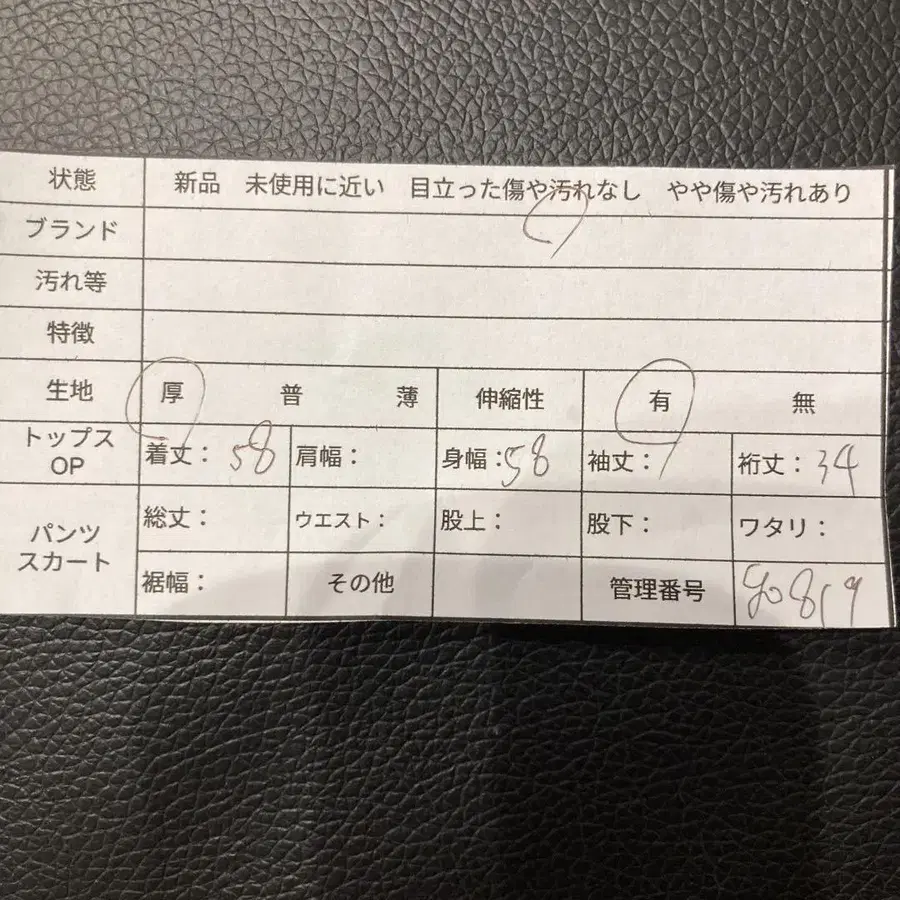 状態 新品 未使用に近い 目立った傷や汚れなし やや傷や汚れあり
ブランド
汚れ等
特徴
生地 厚 普 薄 伸縮性 有 無
トップス OP 着丈：58 肩幅： 身幅：58 袖丈： 裄丈：34
パンツ スカート 総丈： ウエスト： 股上： 股下： ワタリ：
裾幅： その他 管理番号